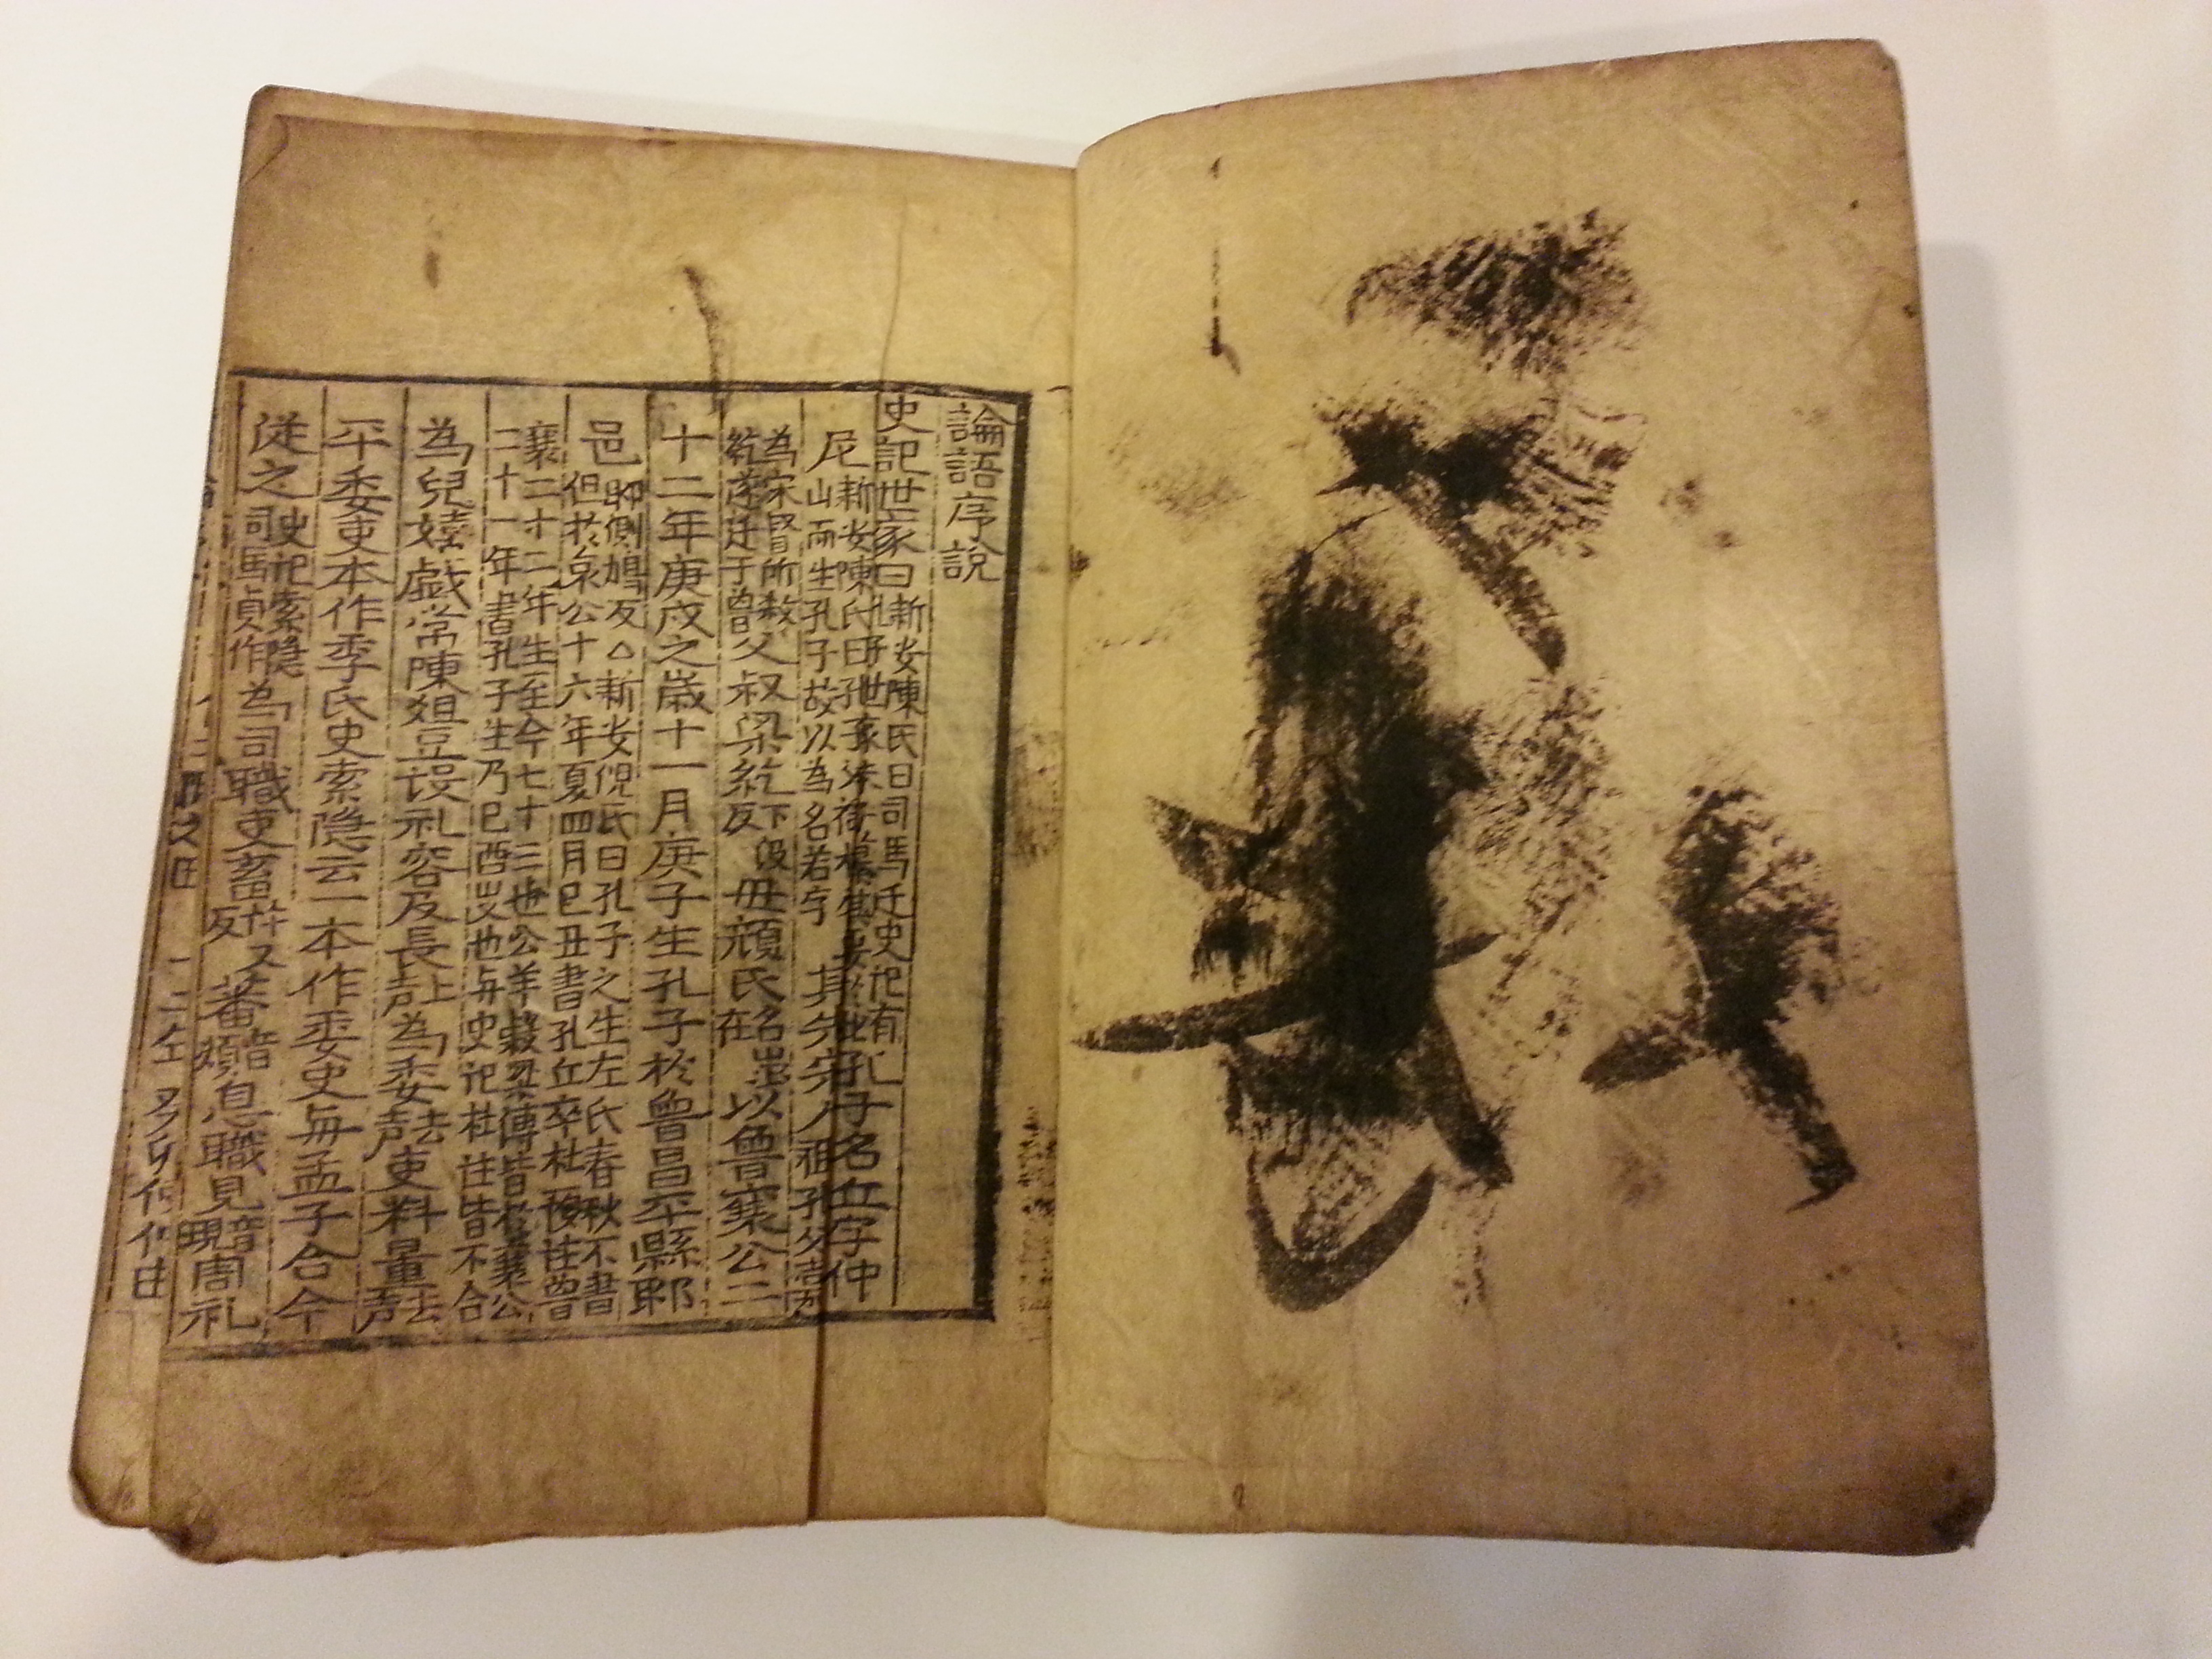 論語序說
史記世家曰新安陳氏曰司馬迁史記有孔子名丘字仲
尼山而生孔子故以為名若字其先宋人祖孔父嘉
為宋督所殺
紇遂迁于魯父叔梁紇下沒反母顔氏名徵在以魯襄公二
十二年庚戌之歲十一月庚子生孔子於魯昌平縣郰
邑郰側鳩反△新安倪氏曰孔子之生左氏春秋不書
但於哀公十六年夏四月己丑書孔丘卒杜預註魯
襄二十二年生至今七十三也公羊穀梁傳皆於襄公
二十一年書孔子生乃己酉歲也与史記杜註皆不合
為兒嬉戲常陳俎豆設礼容及長上声為委去声吏料量去声
平委吏本作季氏史索隐云一本作委史与孟子合今
從之史記索隐司馬貞作為司職吏畜許又反蕃音煩息職見音現周礼